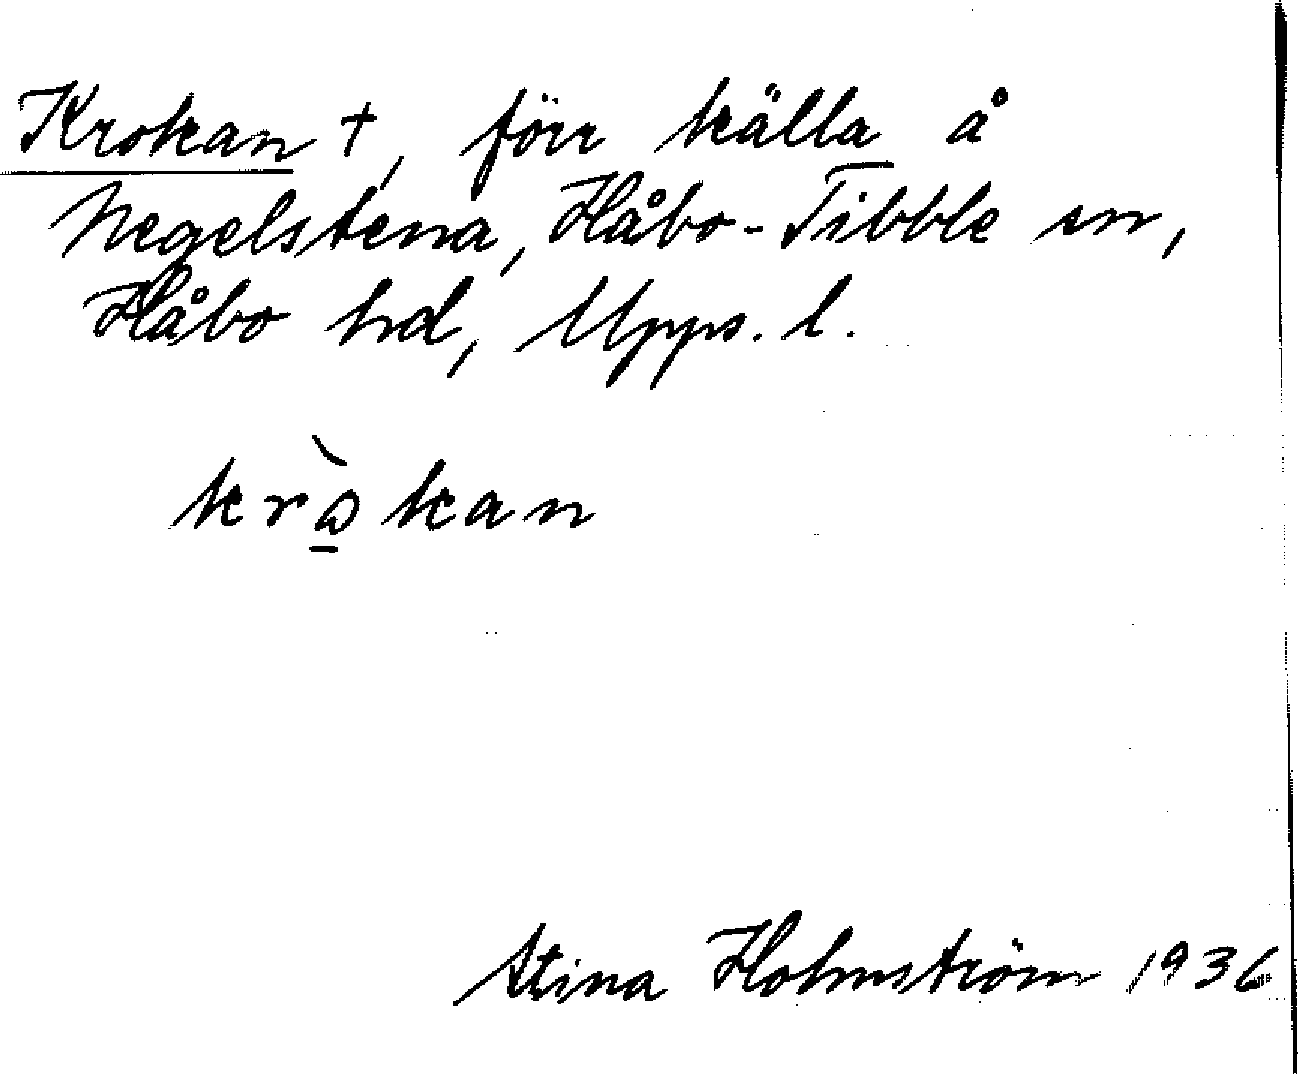 Krokan †, förr källa å
Negelstena, Håbo-Tibble sn,
Håbo hd, Upps. l.
krὼ̠kan
Stina Holmström 1936